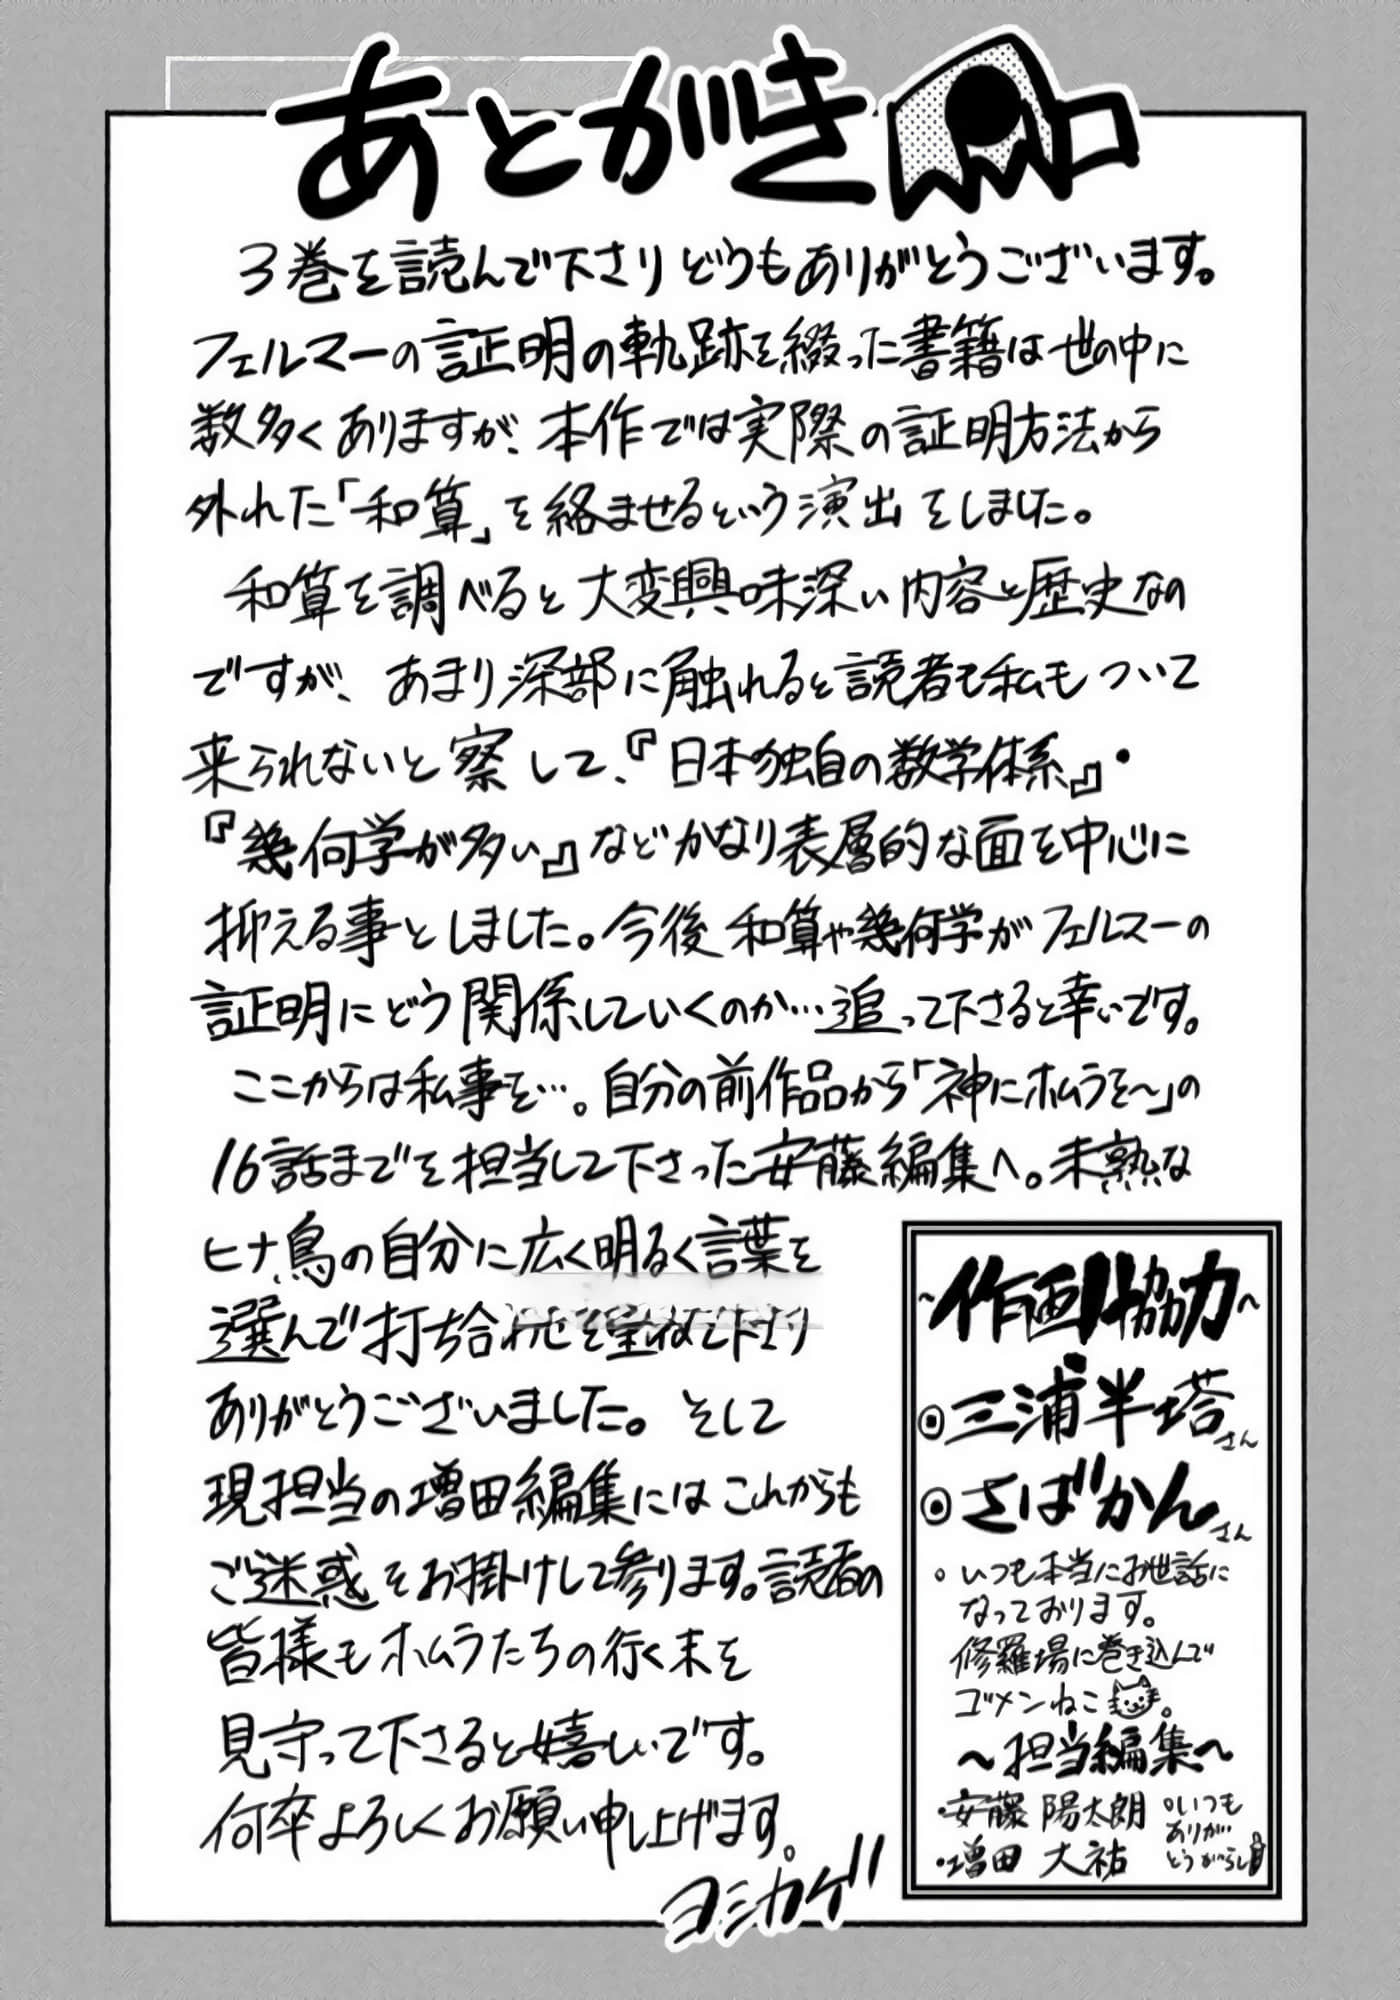 あとがき
3巻を読んで下さりどうもありがとうございます。
フェルマーの証明の軌跡を綴った書籍は世の中に
数多くありますが、本作では実際の証明方法から
外れた「和算」を絡ませるという演出をしました。
和算を調べると大変興味深い内容と歴史なの
ですが、あまり深部に触れると読者も私もついて
来られないと察して、『日本独自の数学体系』・
『幾何学が多い』などかなり表層的な面を中心に
抑える事としました。今後和算や幾何学がフェルマーの
証明にどう関係していくのか…追って下さると幸いです。
ここからは私事を…。自分の前作品から「神にホムラを〜」の
16話までを担当して下さった安藤編集へ。未熟な
ヒナ鳥の自分に広く明るく言葉を
選んで打ち合わせを重ねて下さり
ありがとうございました。そして
現担当の増田編集にはこれからも
ご迷惑をお掛けして参ります。読者の
皆様もホムラたちの行く末を
見守って下さると嬉しいです。
何卒よろしくお願い申し上げます。
ヨシカゲ
〜作画協力〜
三浦半塔さん
さばかんさん
いつも本当にお世話に
なっております。
修羅場に巻き込んで
ゴメンねこ。
〜担当編集〜
・安藤 陽太朗
・増田 大祐
いつも
ありが
とうがらし